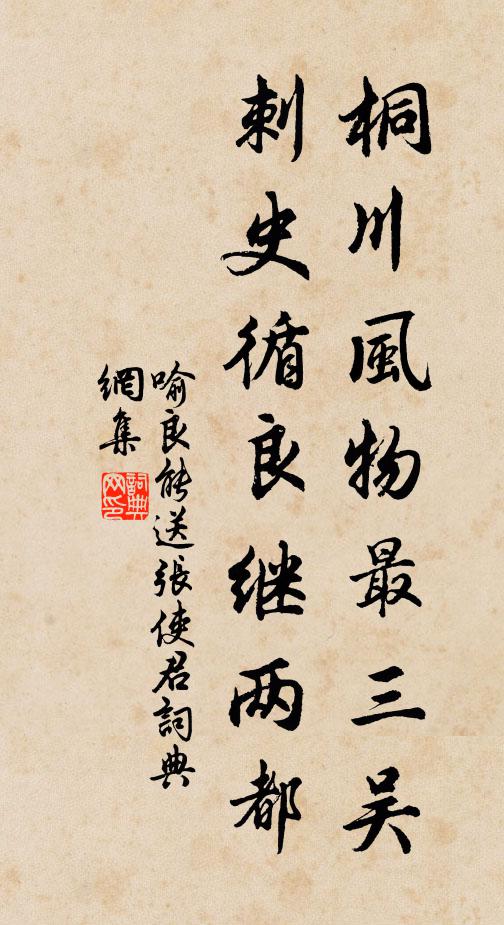 桐川風物最三吴
刺史循良继两都
喻良能送張使君詞典
網集
詞典
网印